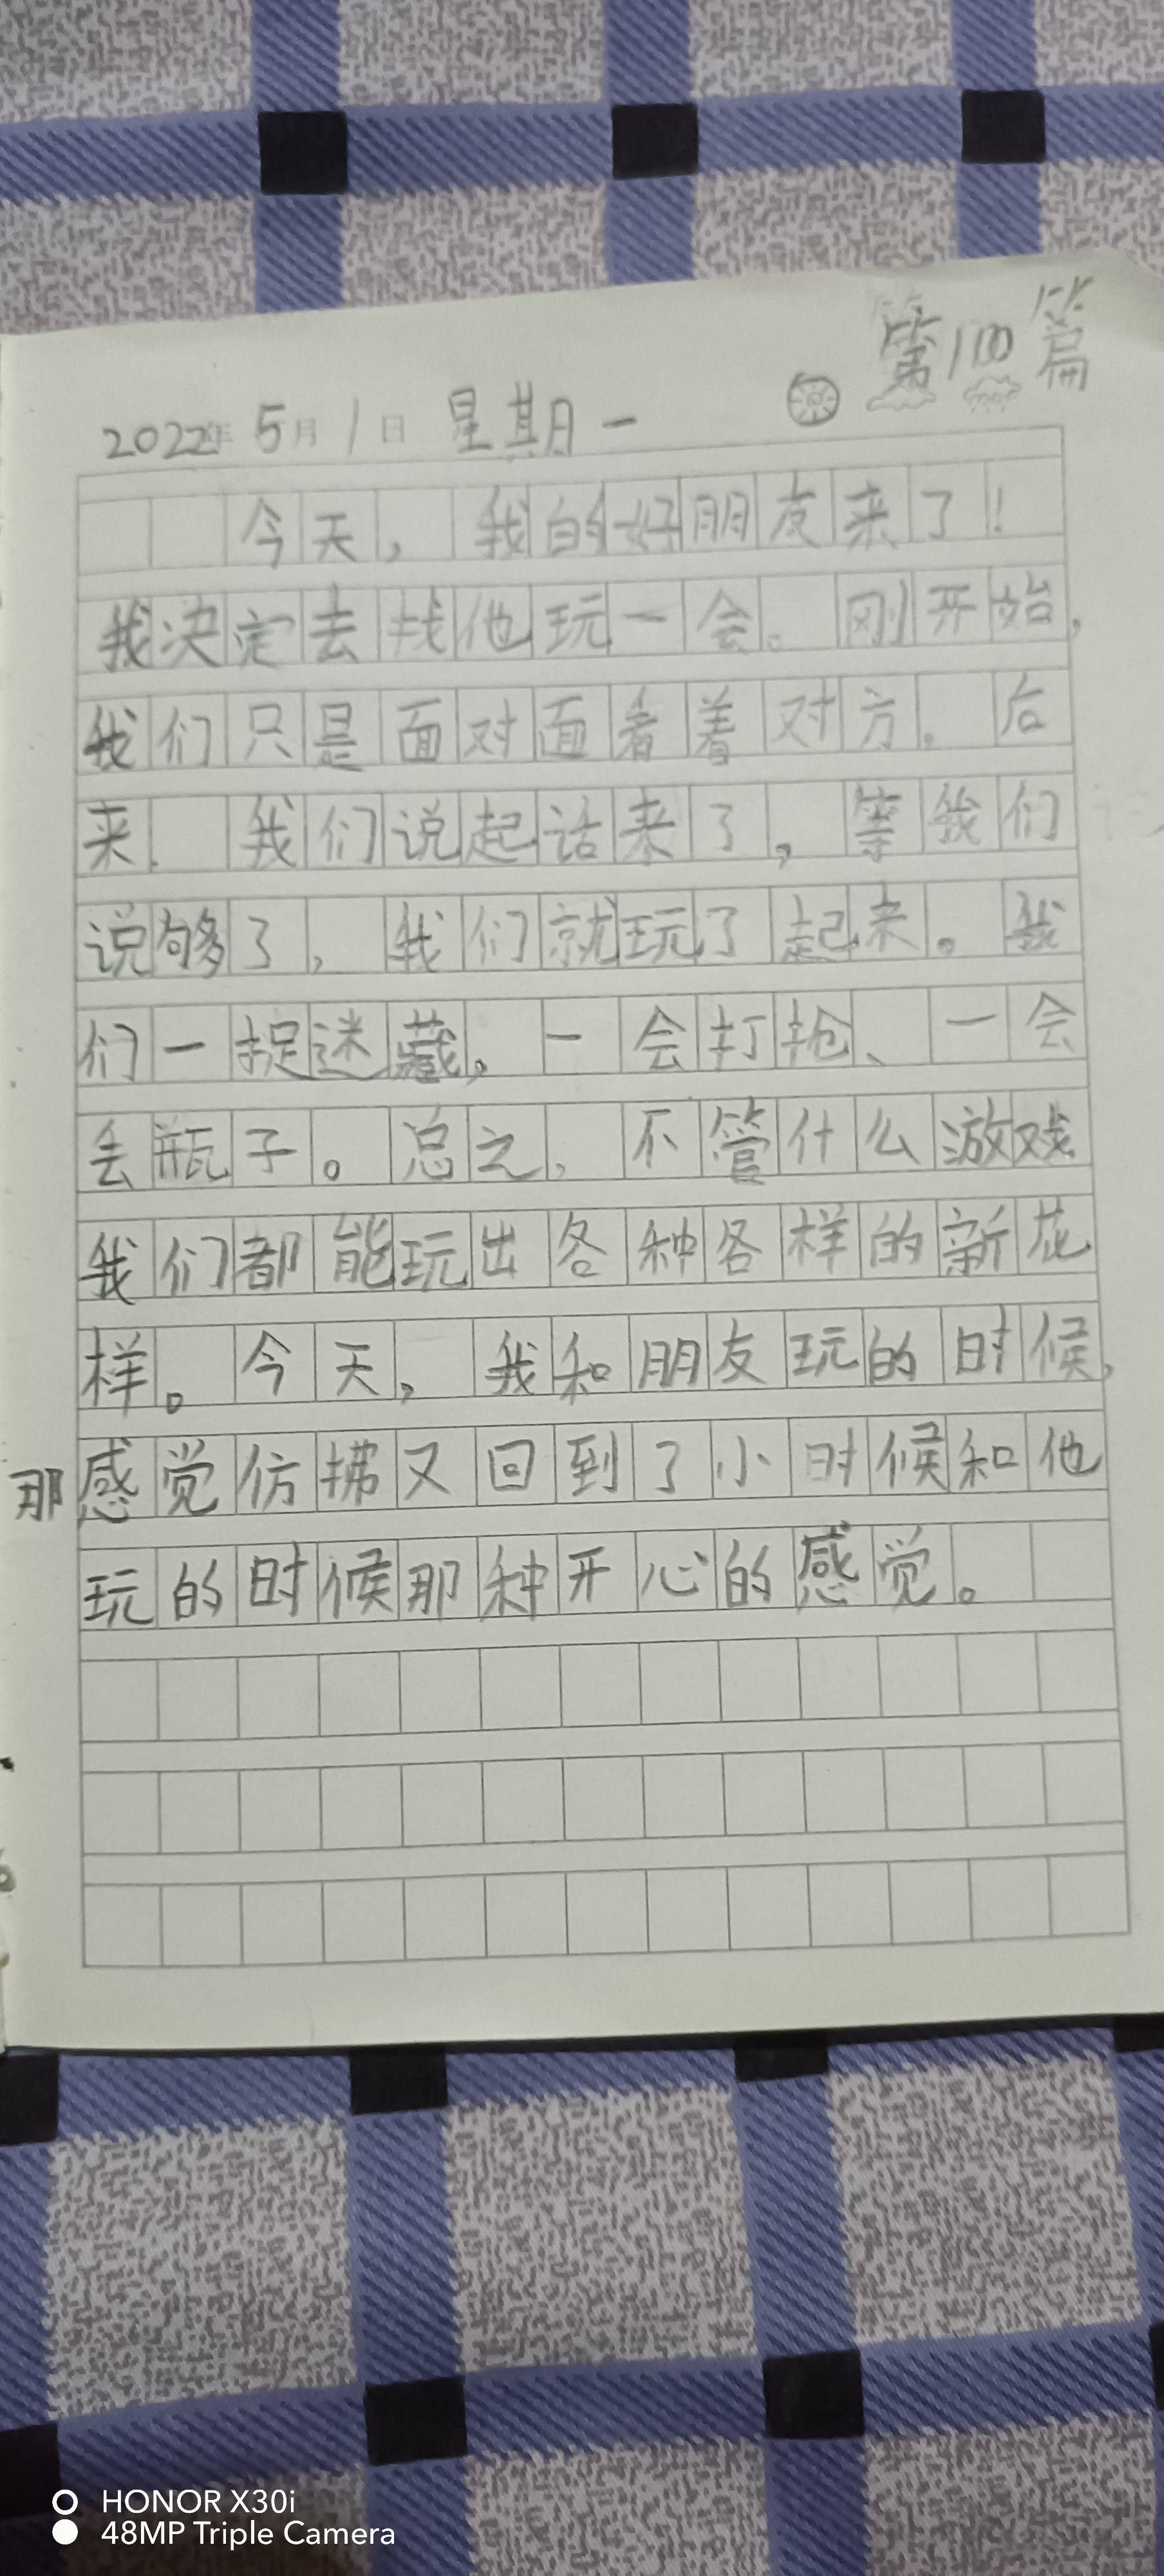 第100篇
2022年 5月 1日 星期一
今天，我的好朋友来了！
我决定去找他玩一会。刚开始，
我们只是面对面看着对方。后
来，我们说起话来了，等我们
说够了，我们就玩了起来。我
们一捉迷藏，一会打抢、一会
丢瓶子。总之，不管什么游戏
我们都能玩出各种各样的新花
样。今天，我和朋友玩的时候，
那感觉仿拂又回到了小时候和他
玩的时候那种开心的感觉。
HONOR X30i
48MP Triple Camera